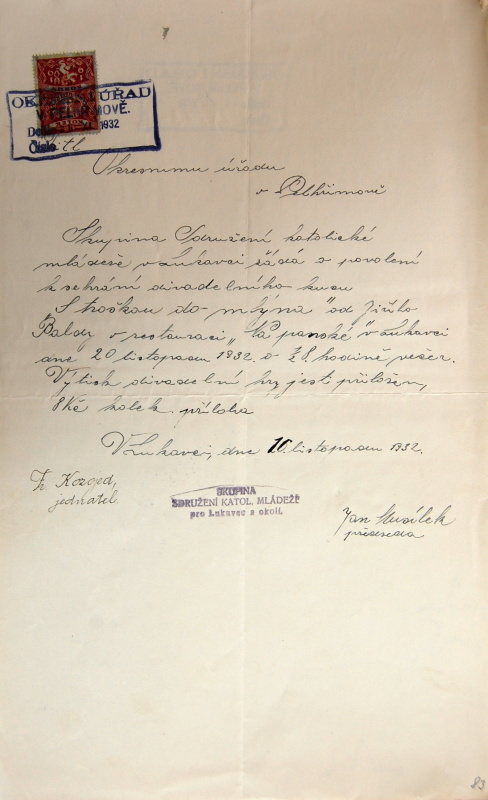 OKRESNÍ ÚŘAD
V PELHŘIMOVĚ.
Došlo 1932
Číslo
Okresnímu úřadu
v Pelhřimově
Skupina Sdružení katolické
mládeže v Lukavci žádá o povolení
k sehrání divadelního kusu
„S troškou do mlýna" od Jiřího
Baldy v restauraci „Na panské" v Lukavci
dne 20 listopadu 1932 o ½8. hodině večer.
Výtisk divadelní hry jest přiložen,
8 Kč kolek. příloha
V Lukavci, dne 10. listopadu 1932.
Kozojed,
jednatel.
SKUPINA
SDRUŽENÍ KATOL. MLÁDEŽE
pro Lukavec a okolí.
Jan Musílek
předseda
23